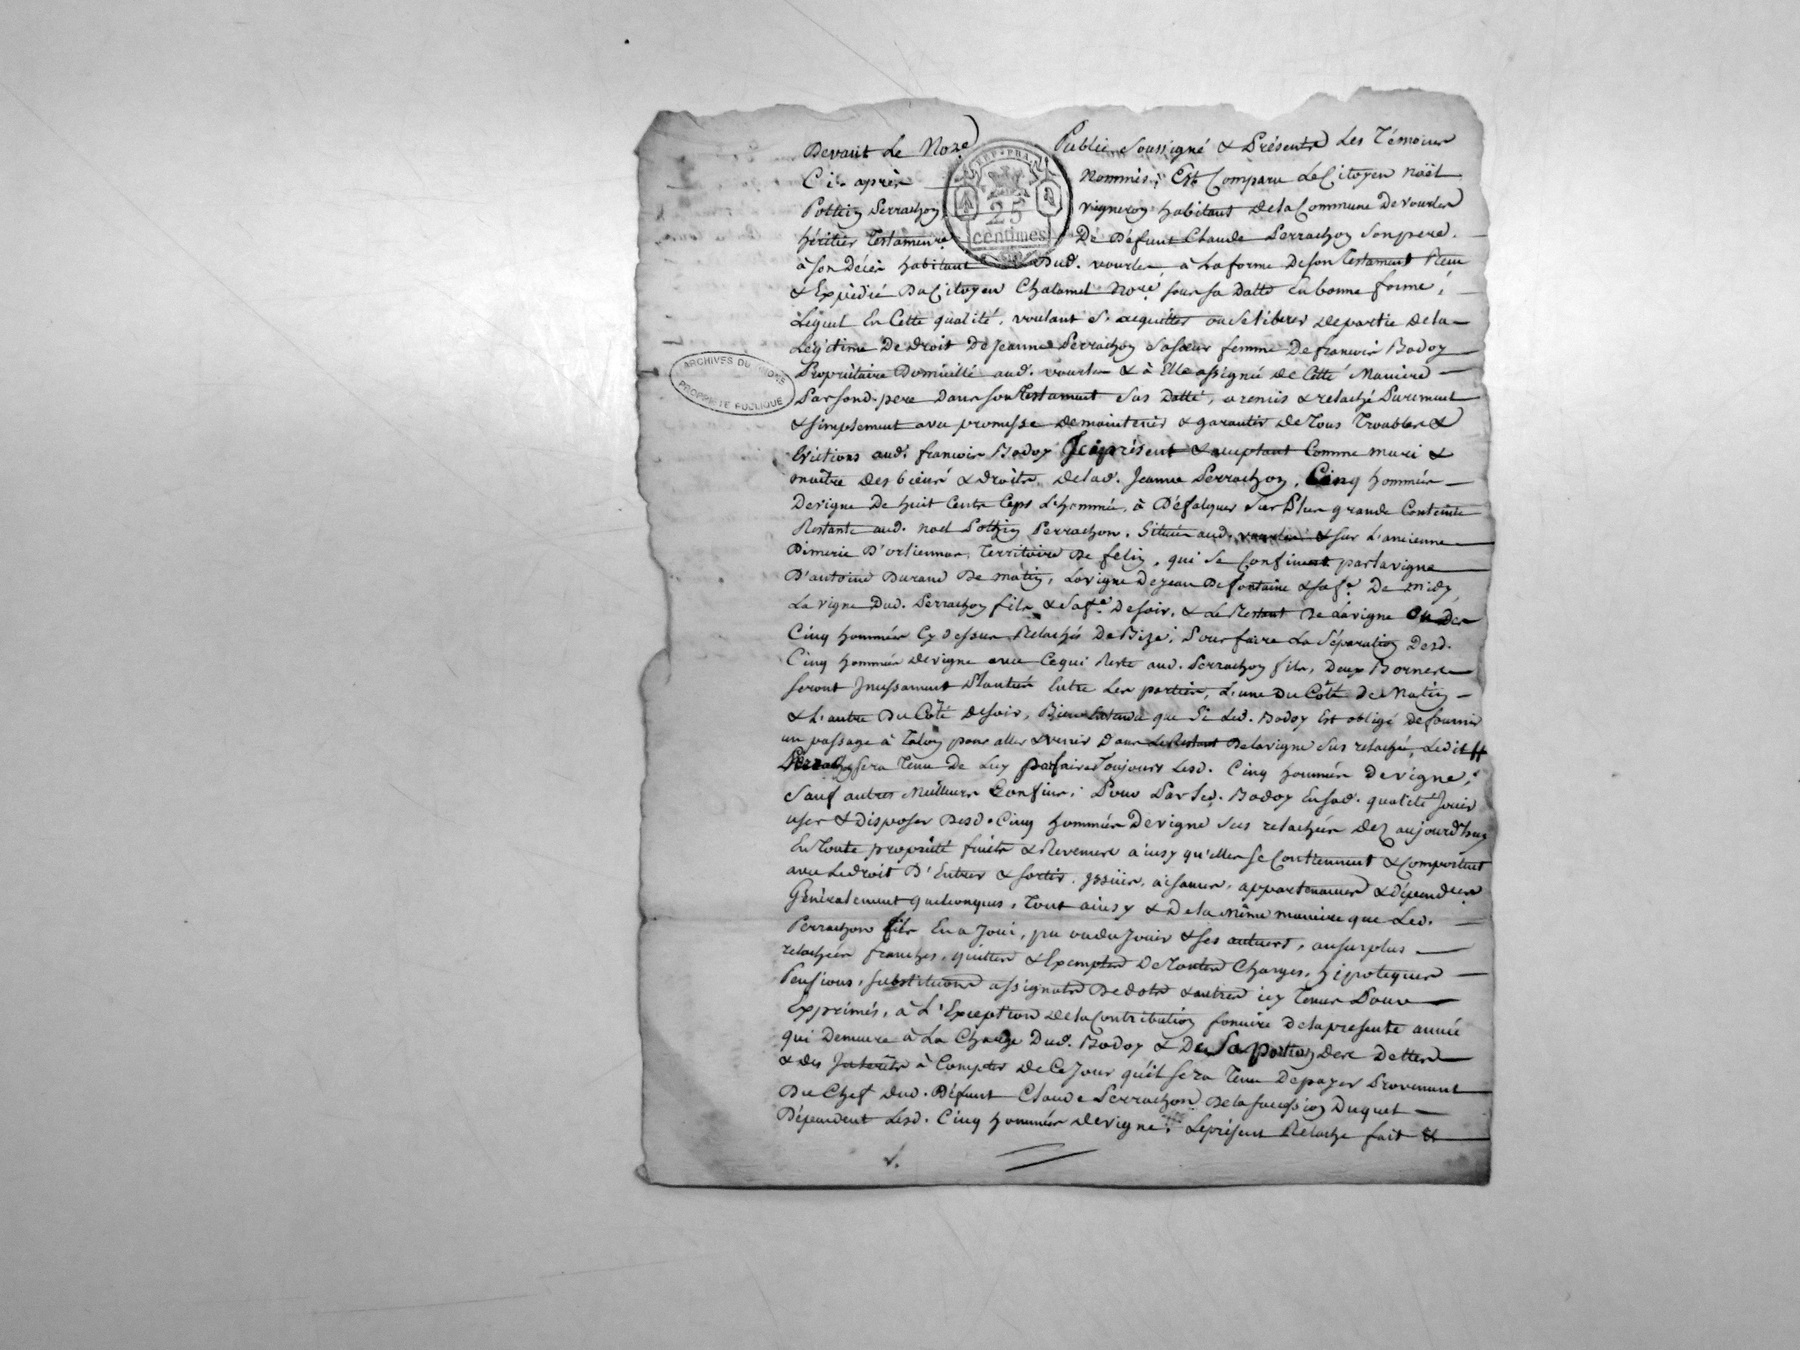 Devant Le No.re Public Soussigné & Présents Les Témoins
Ci-après Nommés; Est Comparu Le Citoyen Noël
Pothin Perrachon vigneron habitant de la Commune de vourles
héritier Testamen.re De Défunt Claude Perrachon Son pere
à Son Décès habitant Dud. vourles, à La forme de Son Testament Reçu
& Expédié Du Citoyen Chalamel No.re Sous Sa Datte en bonne forme;
Lequel En Cette qualité, voulant S'acquitter ou Se liberer de partie de la
Légitime De droit De Jeanne Perrachon Sa Sœur femme De francois Badoy
Propriétaire Domicilié aud. vourles & à Elle assignée de Cette Maniere
Par Sond. pere dans Son Testament Sus Datté, a remis & relaché Purement
& Simplement avec promesse de maintenir & garantir de Tous Troubles &
Evictions aud. francois Badoy Icy présent & acceptant Comme mari &
maitre des biens & droits de lad. Jeanne Perrachon, Cinq hommées
de vigne De huit Cents Ceps L'hommée, à Défalquer Sur Plus grande Contenue
Restante aud. Noel Pothin Perrachon, Situées aud. vourles & Sur L'ancienne
Dimerie D'orliennas, Territoire De felin, qui Se Confinent par la vigne
D'antoine Durand De Matin, La vigne de Jean Defontaine & Sa f.e De midy,
La vigne Dud. Perrachon fils & Sa f.e De Soir, & Le Restant De La vigne ou des
Cinq hommées Cy dessus Relachés De Bize; Pour faire La Séparation Desd.
Cinq hommées de vigne avec Ce qui Reste aud. Perrachon fils, Deux Bornes
Seront Incessament Plantées Entre Les parties, L'une Du Côté De Matin
& L'autre Du Côté de Soir, Bien Entendu que Si Led. Badoy Est obligé de fournir
un passage à Talon pour aller & venir dans Le Restant De la vigne Sus relachée, Ledit
Perrachon Sera Tenu De Luy parfaire Toujours Lesd. Cinq hommées de vigne,
Sauf autres Meilleurs Confins; Pour Par Led. Badoy En Sad. qualité Jouir
user & Disposer Desd. Cinq hommées De vigne Sus relachées dez aujourd'huy
En Toute propriété fruits & Revenus ainsy qu'elles Se Contiennent & Comportent
avec Le droit D'Entrer & Sortir, Issües, aisances, appartenances & dépend.ces
Généralement quelconques, Tout ainsy & De la Même maniere que Led.
Perrachon fils En a Joui, pu ou du Jouir & Ses auteurs, au Surplus
relachées franches, quittes & Exemptes De Toutes Charges, hipoteques
Pensions, Substitutions assignats De dots & autres icy Tenus Pour
Exprimés, à L'Exception de la Contribution fonciere de la presente année
qui Demeure à La Charge Dud. Badoy & De Sa portion des Dettes
& des Intérêts à Compter de Ce Jour qu'il Sera Tenu De payer Provenant
Du Chef dud. Défunt Claude Perrachon De la Succession Duquel
Dépendent Lesd. Cinq hommées de vigne; Le présent Relache fait &
REP. FRA.
25
centimes
ARCHIVES DU RHONE
PROPRIETE PUBLIQUE